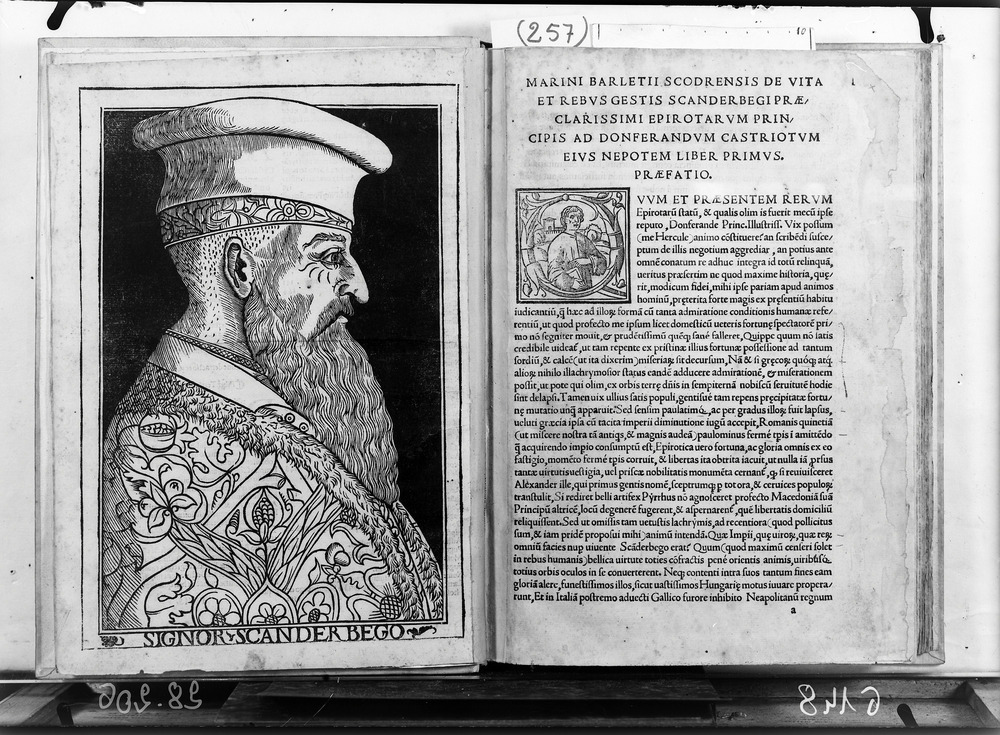 (257)
10
SIGNOR SCANDER BEGO
MARINI BARLETII SCODRENSIS DE VITA
ET REBVS GESTIS SCANDERBEGI PRÆ/
CLARISSIMI EPIROTARVM PRIN/
CIPIS AD DONFERANDVM CASTRIOTVM
EIVS NEPOTEM LIBER PRIMVS.
PRÆFATIO.
VVM ET PRÆSENTEM RERVM
Epirotarū statū, & qualis olim is fuerit mecū ipse
reputo, Donferande Princ. Illustriss. Vix possum
(me Hercule) animo cōstituere: an scribēdi susce/
ptum de illis negotium aggrediar, an potius ante
omnē conatum re adhuc integra id totū relinquā,
ueritus præsertim ne quod maxime historia, quę/
rit, modicum fidei, mihi ipse pariam apud animos
hominū, pręterita forte magis ex pręsentiū habitu
iudicantiū, q̄ hæc ad illoꝝ formā cū tanta admiratione conditionis humanæ refe/
rentiū, ut quod profecto me ipsum licet domesticū ueteris fortunę spectatorē pri/
mo nō segniter mouit, & prudētissimū quēq; sanē falleret, Quippe quum nō satis
credibile uideat̄, ut tam repente ex pristinæ illius fortunæ possessione ad tantum
sordiū, & calcē (ut ita dixerim) miseriaꝝ sit decursum, Nā & si gręcoꝝ quóq; atq;
alioꝝ nihilo illachrymosior status eandē adducere admirationē, & miserationem
possit, ut pote qui olim, ex orbis terrę dñis in sempiternā nobiscū seruitutē hodie
sint delapsi. Tamen uix ullius satis populi, gentisuē tam repens pręcipitatę fortu/
nę mutatio unq̄ apparuit. Sed sensim paulatimq;, ac per gradus illoꝝ fuit lapsus,
ueluti græcia ipsa cū tacita imperii diminutione iugū accepit, Romanis quinetiā
(ut miscere nostra tā antiqs, & magnis audeā) paulominus fermé tpis ī amittēdo
q̄ acquirendo impio consumptū est, Epirotica uero fortuna, ac gloria omnis ex eo
fastigio, momēto fermé tpis corruit, & libertas ita obtrita iacuit, ut nulla iā prsus
tantæ uirtutis uestigia, uel priscæ nobilitatis monumēta cernant̄, q̄ si reuiuisceret
Aléxander ille, qui primus gentis nomē, sceptrumq; p tot ora, & ceruices populoꝝ
transtulit, Si rediret belli artifex Pyrrhus nō agnosceret profecto Macedoniā suā
Principū altricē, locū degenerē fugerent, & aspernarent̄, quē libertatis domiciliū
reliquissent. Sed ut omissis tam uetustis lachrymis, ad recentiora (quod pollicitus
sum, & iam pridē proposui mihi) animū intendā. Quæ Impii, quę uiroꝝ, quæ reꝝ
omniū facies nup uiuente Scāderbego erat? Quum (quod maximū censeri solet
in rebus humanis) bellica uirtute toties cōfractis penè orientis animis, uiribusq;
totius orbis oculos in se conuerterent. Neq; contenti intra suos tantum fines eam
gloriā alere, funestissimos illos, sicut uastissimos Hungarię motus iuuare propera/
runt, Et in Italiā postremo aduecti Gallico furore inhibito Neapolitanū regnum
a
28.206
6148